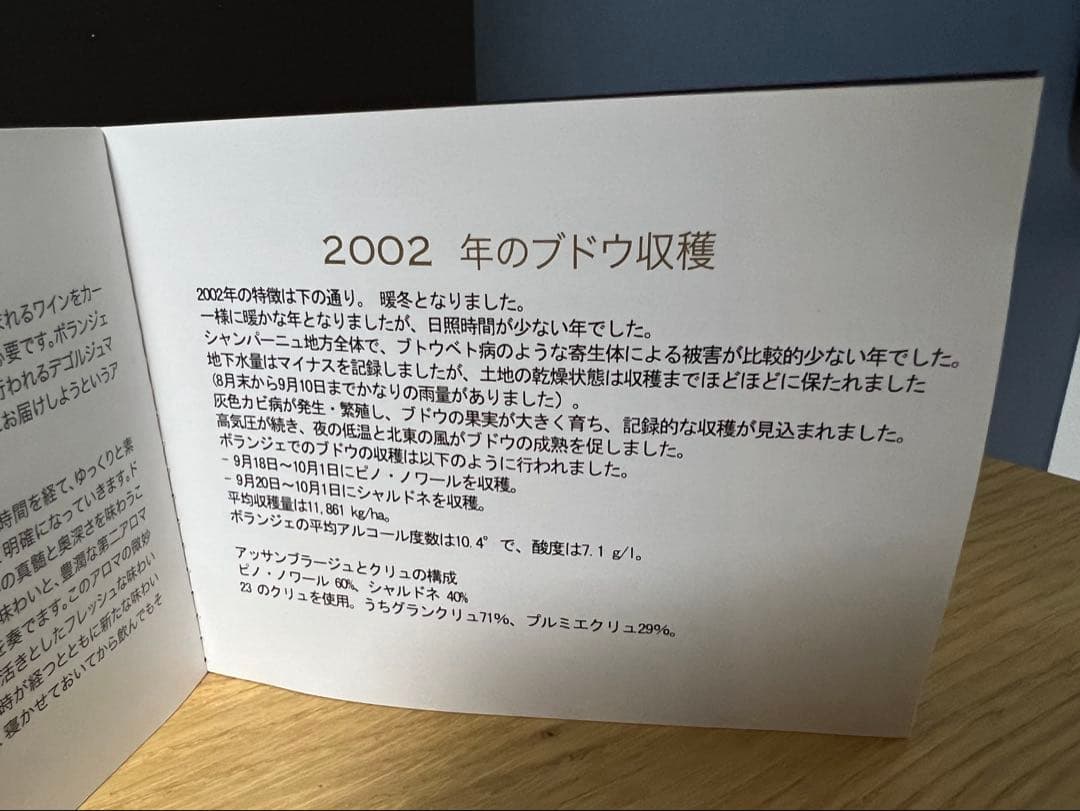 れるワインをカー
要です。ボランジェ
われるデゴルジュマ
お届けしようというア
時間を経て、ゆっくりと素
明確になっていきます。ド
の真髄と奥深さを味わうこ
味わいと、豊潤な第二アロマ
を奏でます。このアロマの微妙
活きとしたフレッシュな味わい
時が経つとともに新たな味わい
寝かせておいてから飲んでもそ
2002 年のブドウ収穫
2002年の特徴は下の通り。 暖冬となりました。
一様に暖かな年となりましたが、日照時間が少ない年でした。
シャンパーニュ地方全体で、ブトウベト病のような寄生体による被害が比較的少ない年でした。
地下水量はマイナスを記録しましたが、土地の乾燥状態は収穫までほどほどに保たれました
(8月末から9月10日までかなりの雨量がありました)。
灰色カビ病が発生・繁殖し、ブドウの果実が大きく育ち、記録的な収穫が見込まれました。
高気圧が続き、夜の低温と北東の風がブドウの成熟を促しました。
ボランジェでのブドウの収穫は以下のように行われました。
- 9月18日～10月1日にピノ・ノワールを収穫。
- 9月20日～10月1日にシャルドネを収穫。
平均収穫量は11,861 kg/ha。
ボランジェの平均アルコール度数は10.4° で、酸度は7.1 g/l。
アッサンブラージュとクリュの構成
ピノ・ノワール 60%、シャルドネ 40%
23 のクリュを使用。うちグランクリュ71%、プルミエクリュ29%。